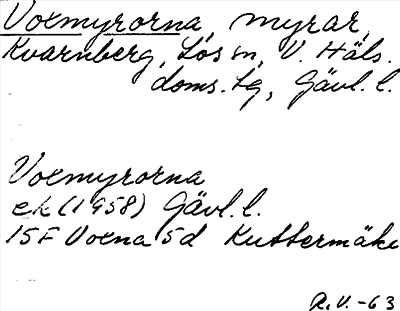 Voxmyrorna, myrar,
Kvarnberg, Los sn, V. Häls.
doms. lg, Gävl. l.
Voxmyrorna
ek (1958) Gävl. l.
15F Voxna 5d Kuttermäki
R.V. -63